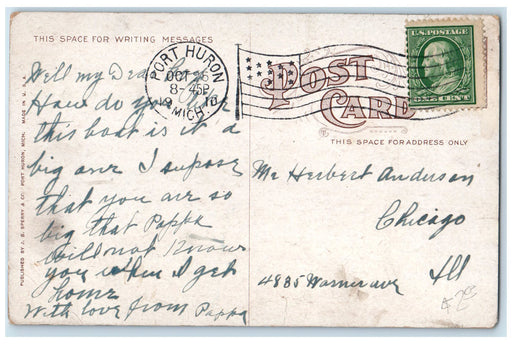 THIS SPACE FOR WRITING MESSAGES
POST
CARD
THIS SPACE FOR ADDRESS ONLY
PORT HURON
OCT 26
8-45P
1910
MICH.
U.S. POSTAGE
ONE CENT
Will my Dear
How do you like
this boat is it a
big one I supose
that you are so
big that Pappa
will not Know
you when I get
home
With love from Pappa
Mr Herbert Anderson
Chicago
4885 Warner ave Ill
PUBLISHED BY J. B. SPERRY & CO. PORT HURON, MICH. MADE IN U. S. A.